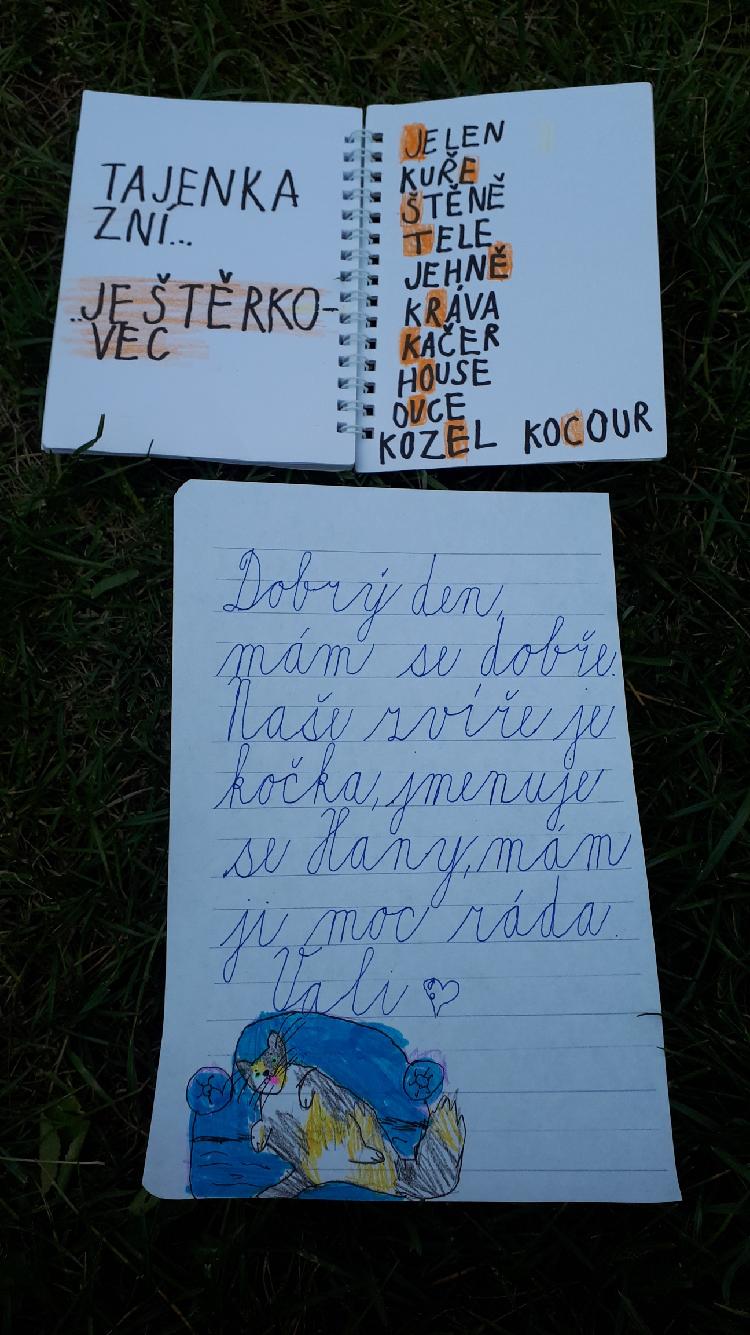 TAJENKA
ZNÍ...
..JEŠTĚRKO-
VEC
JELEN
KUŘE
ŠTĚNĚ
TELE
JEHNĚ
KRÁVA
KAČER
HOUSE
OVCE
KOZEL KOCOUR
Dobrý den,
mám se dobře.
Naše zvíře je
kočka, jmenuje
se Hany, mám
ji moc ráda.
Vali